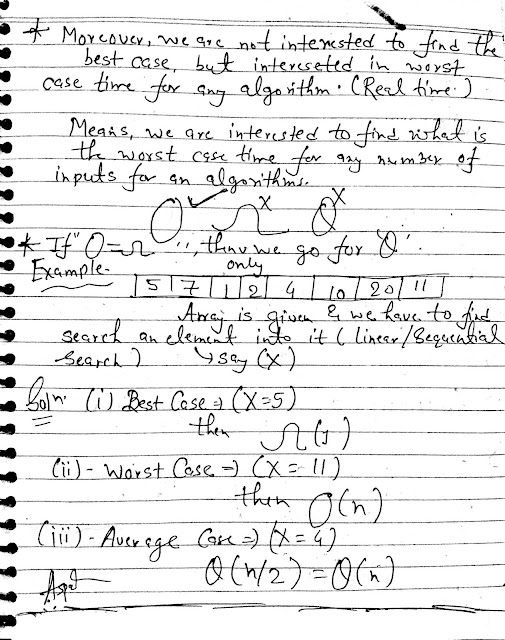 * Moreover, we are not interested to find the
best case, but interseted in worst
case time for any algorithm. (Real time.)
Means, we are interested to find what is
the worst case time for any number of
inputs for an algorithms.
O ✓ Ω x θ x
* If "O=Ω", then we go for 'θ'.
only
Example-
5 7 1 2 4 10 20 11
Array is given & we have to find
search an element into it (linear/Sequential
Search) ↳ say (X)
Soln. (i) Best Case ⇒ (X=5)
then Ω(1)
(ii) - Worst Case ⇒ (X = 11)
then O(n)
(iii) - Average Case ⇒ (X = 4)
θ(n/2) = θ(n)